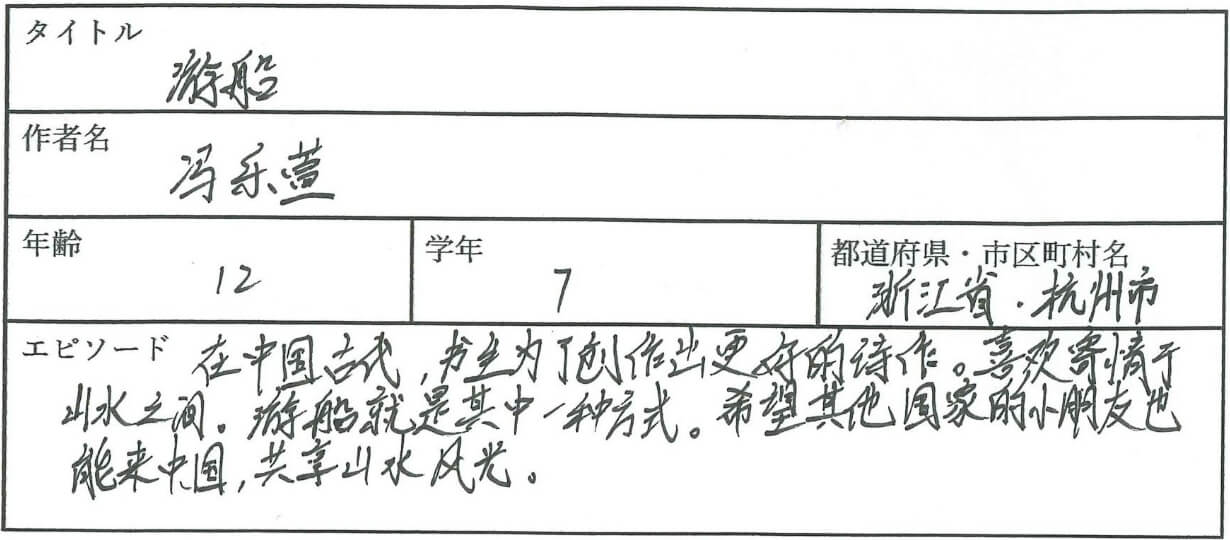 タイトル
游船
作者名
冯乐萱
年齢
12
学年
7
都道府県・市区町村名
浙江省・杭州市
エピソード 在中国古代,书生为了创作出更好的诗作。喜欢寄情于
山水之间。游船就是其中一种方式。希望其他国家的小朋友也
能来中国,共享山水风光。